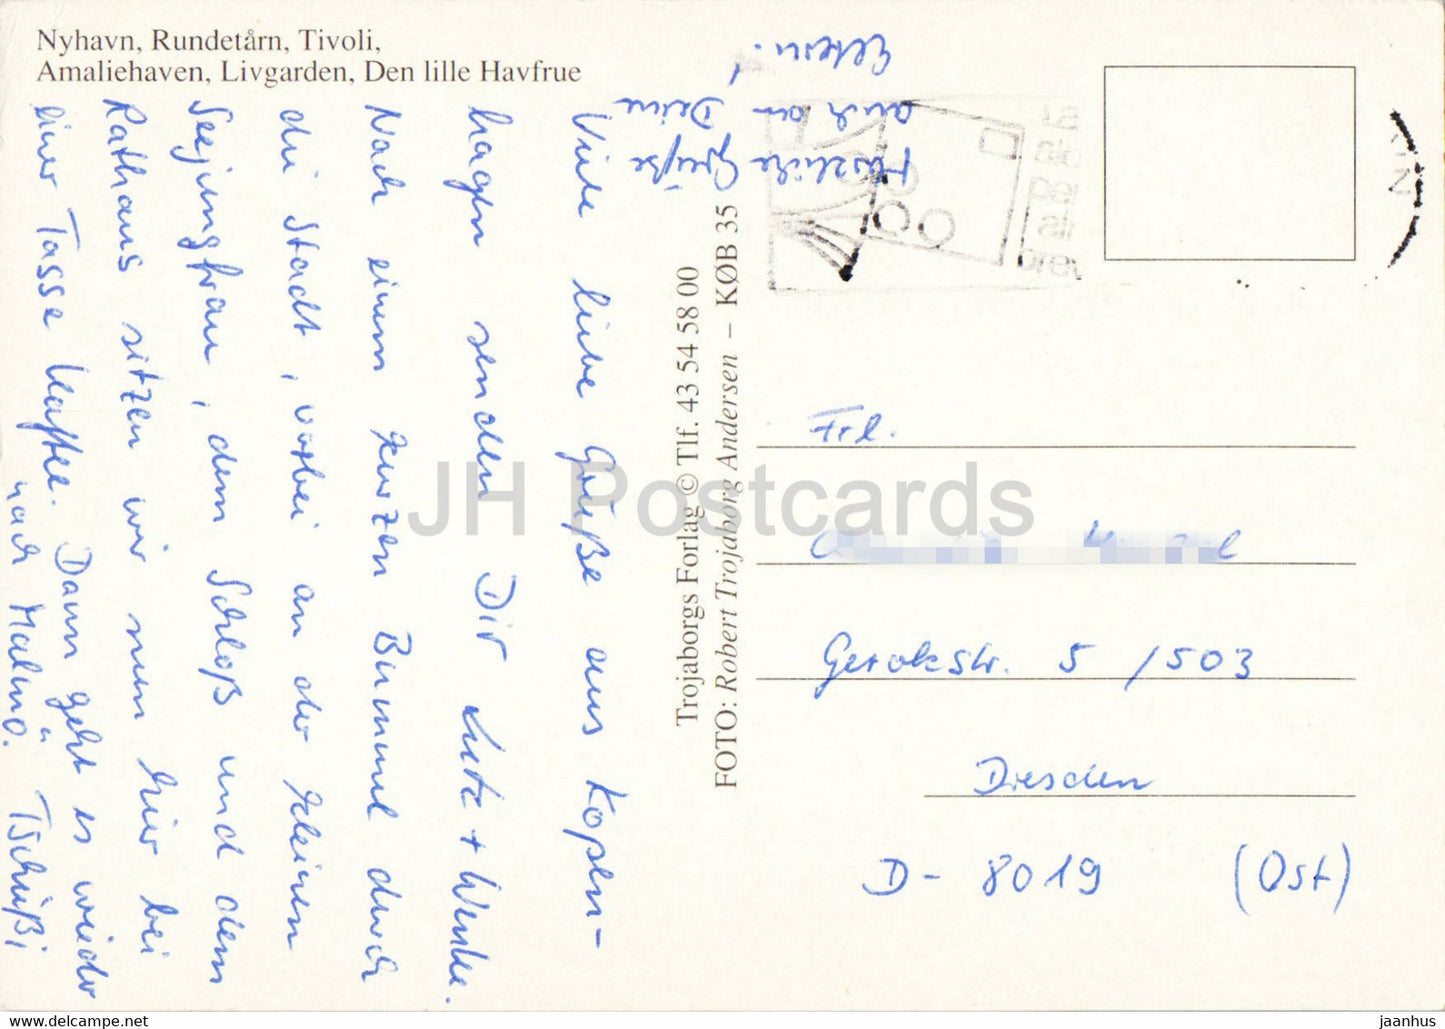 Nyhavn, Rundetårn, Tivoli,
Amaliehaven, Livgarden, Den lille Havfrue
Viele liebe Grüße aus Kopen-
hagen senden Dir Lutz + Wenke.
Nach einem kurzen Bummel durch
die Stadt, vorbei an der kleinen
Seejungfrau, dem Schloß und dem
Rathaus sitzen wir nun hier bei
einer Tasse Kaffee. Dann geht es wieder
nach Malmö. Tschüßi
Herzliche Grüße
auch an Deine
Eltern!
Trojaborgs Forlag © Tlf. 43 54 58 00
FOTO: Robert Trojaborg Andersen – KØB 35
Frl.
Gerokstr. 5 /503
Dresden
D- 8019 (Ost)
JH Postcards
www.jhpostcard.net
jaanhus